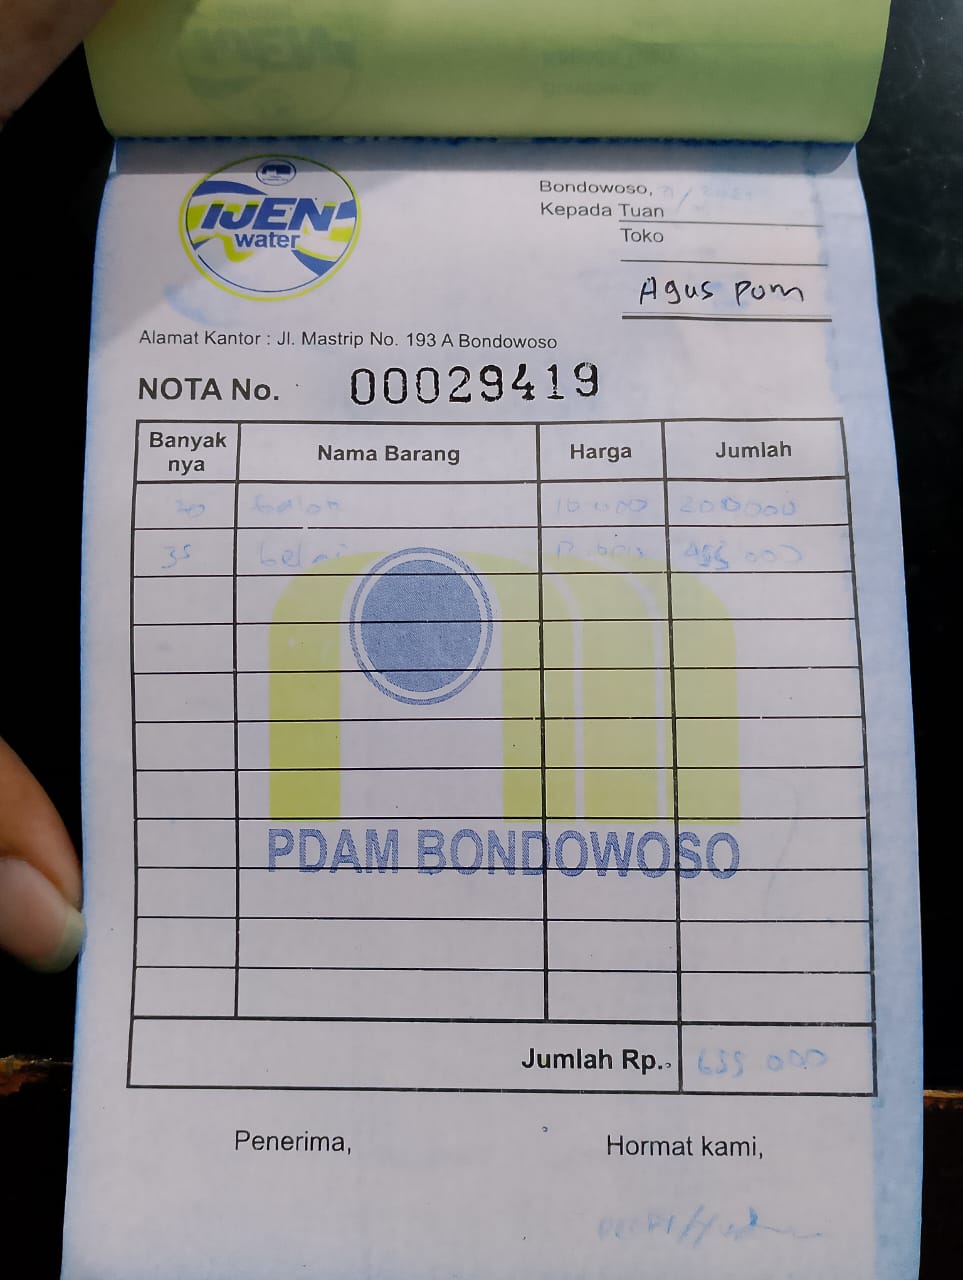 IJEN
water
Bondowoso,
Kepada Tuan
Toko
Agus Pom
Alamat Kantor : Jl. Mastrip No. 193 A Bondowoso
NOTA No. 00029419
Banyak nya Nama Barang Harga Jumlah
20 Galon 10.000 200000
35 455 000
PDAM BONDOWOSO
Jumlah Rp. 655 000
Penerima, Hormat kami,